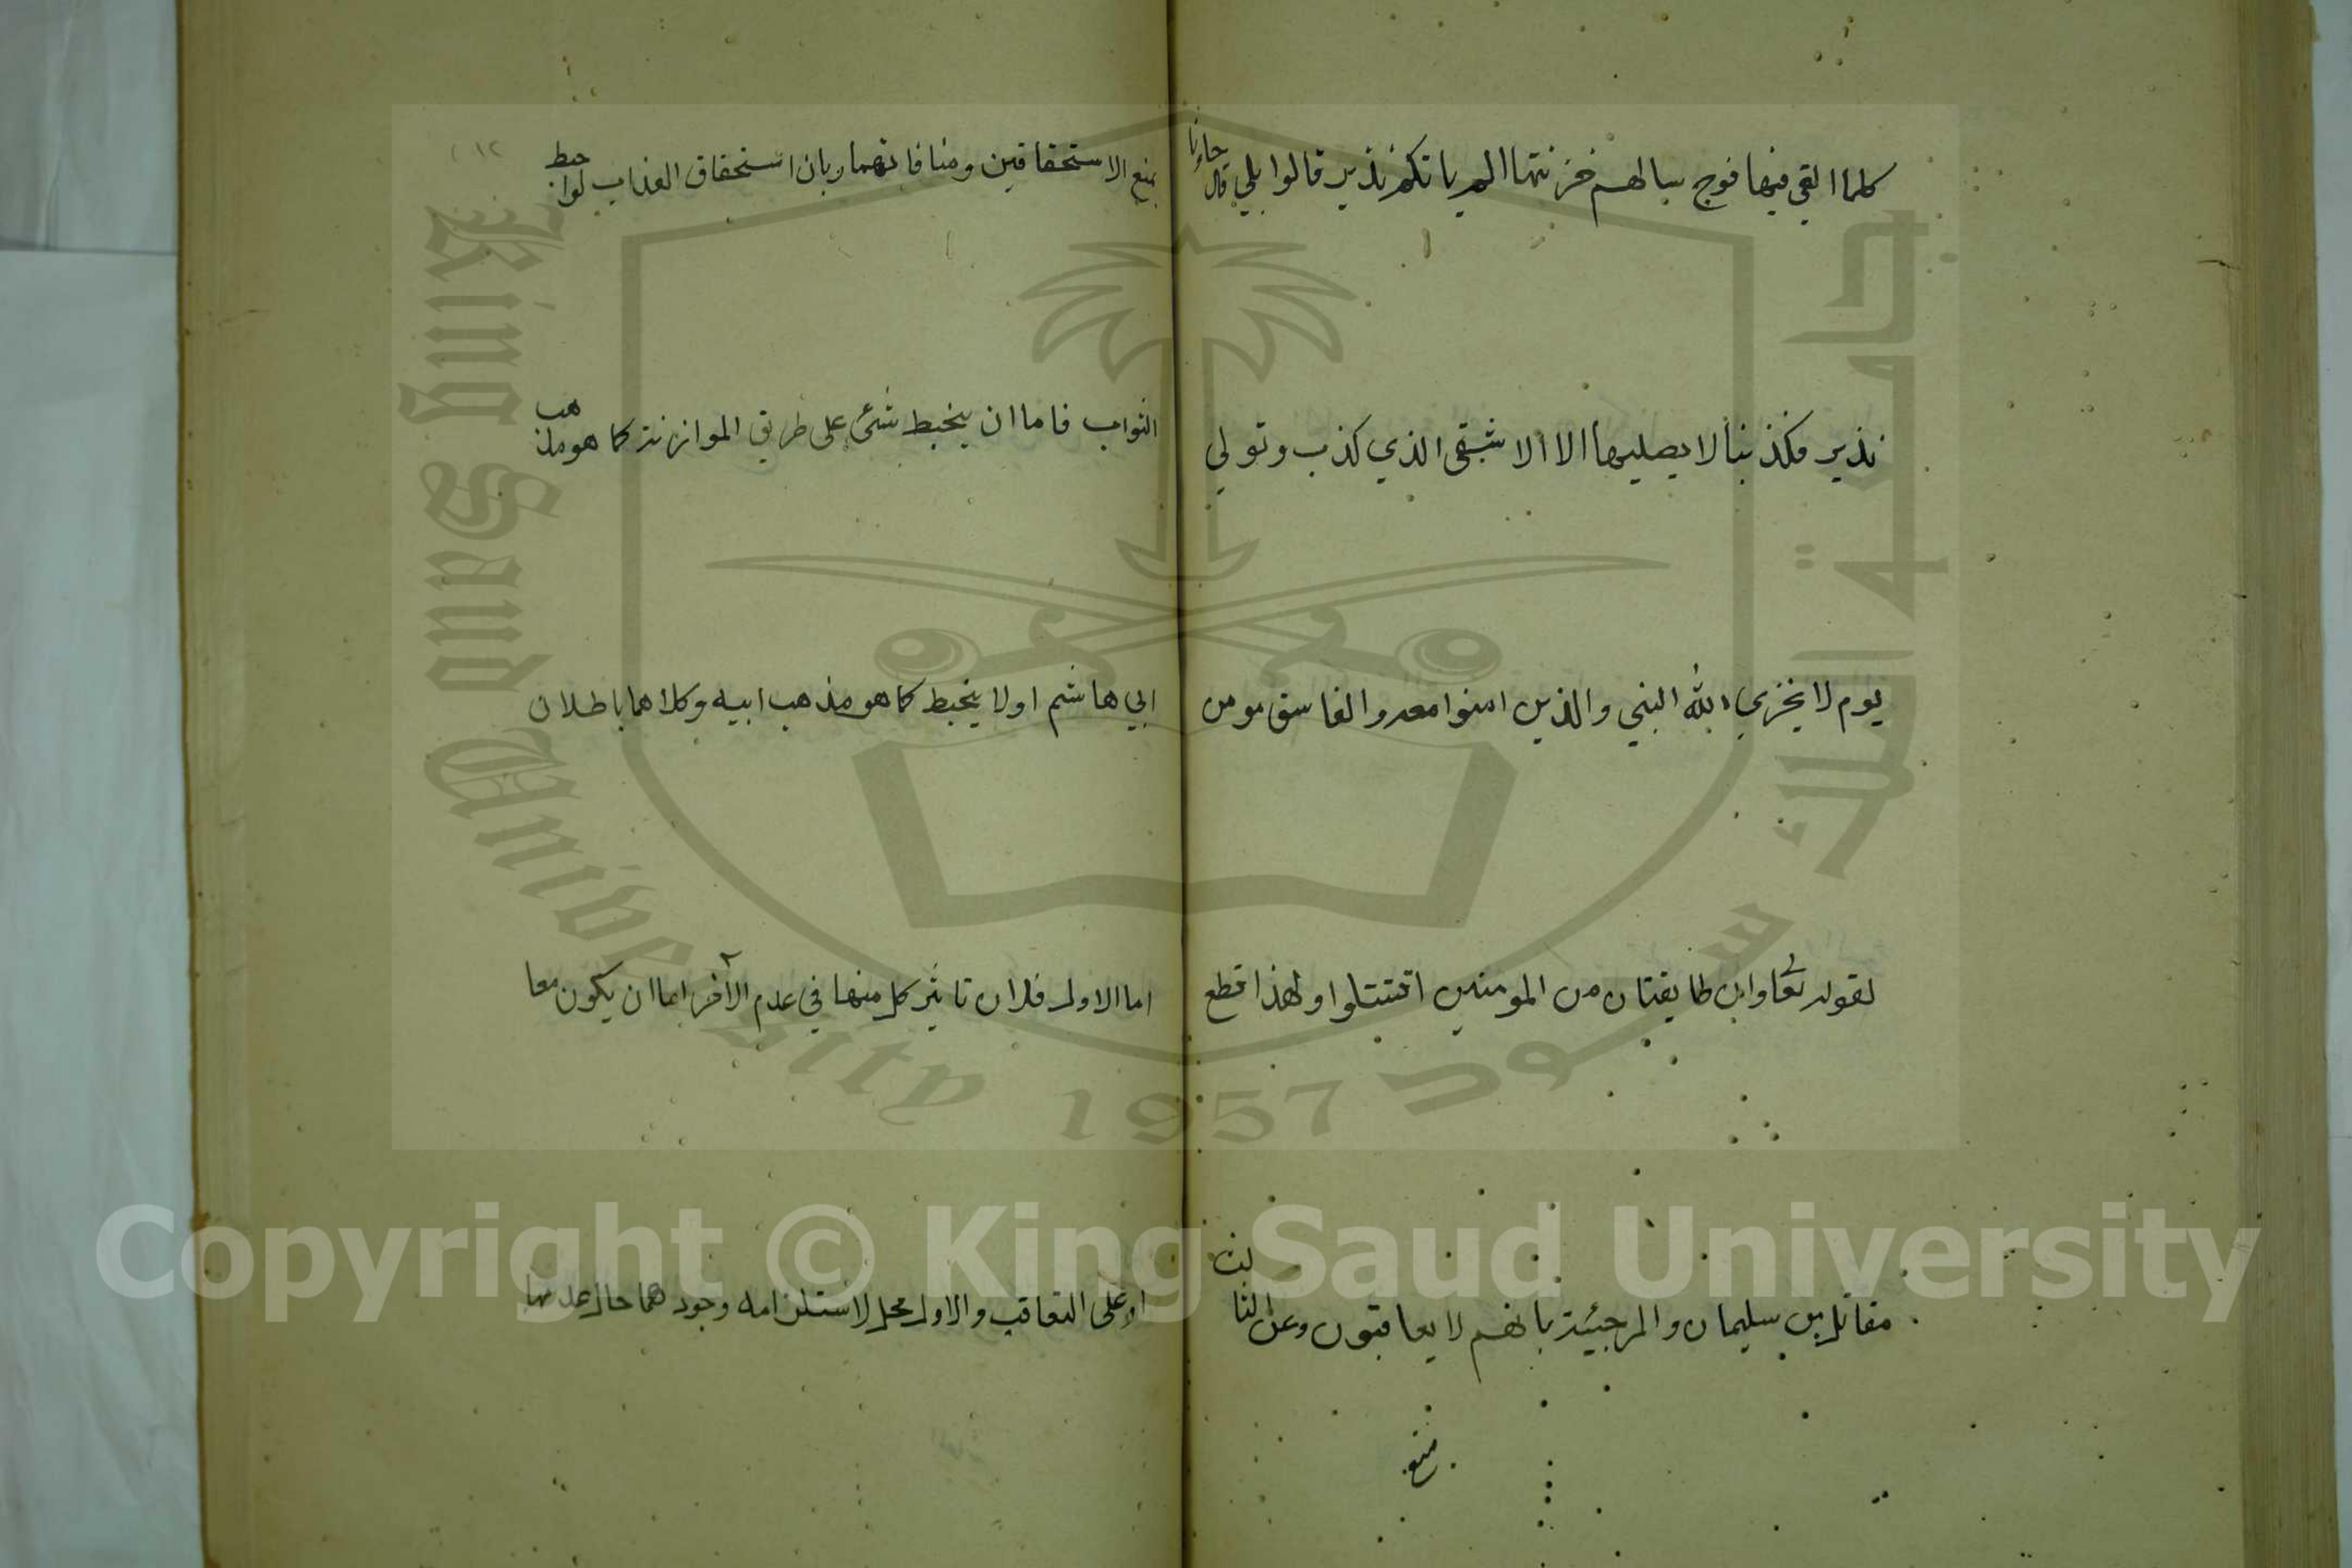 كلما القي فيها فوج سالهم خزنتها الم ياتكم نذير قالوا بلي قال جاءنا
نذير فكذبنا لا يصليها الا الاشقى الذي كذب وتولي
يوم لا يخزي الله النبي والذين امنوا معه والفاسق مومن
لقوله تعا وان طايفتان من المومنين اقتتلوا ولهذا قطع
مقاتل بن سليمان والمرجئة بانهم لا يعاقبون وعن الثا لث
بمنع
بمنع الاستحقاقين ومنافاتهما وبان استحقاق العذاب لوا حبط
الثواب فاما ان ينحبط شئ على طريق الموازنة كما هو مذ هب
ابي هاشم اولا ينحبط كما هو مذهب ابيه وكلاهما باطلان
اما الاول فلان تاثير كل منها في عدم الآخر اما ان يكون معا
او على التعاقب والاول محل لاستلزامه وجودهما حال عدمها
٢١٢
King Saud University
1957
جامعة الملك سعود
Copyright © King Saud University